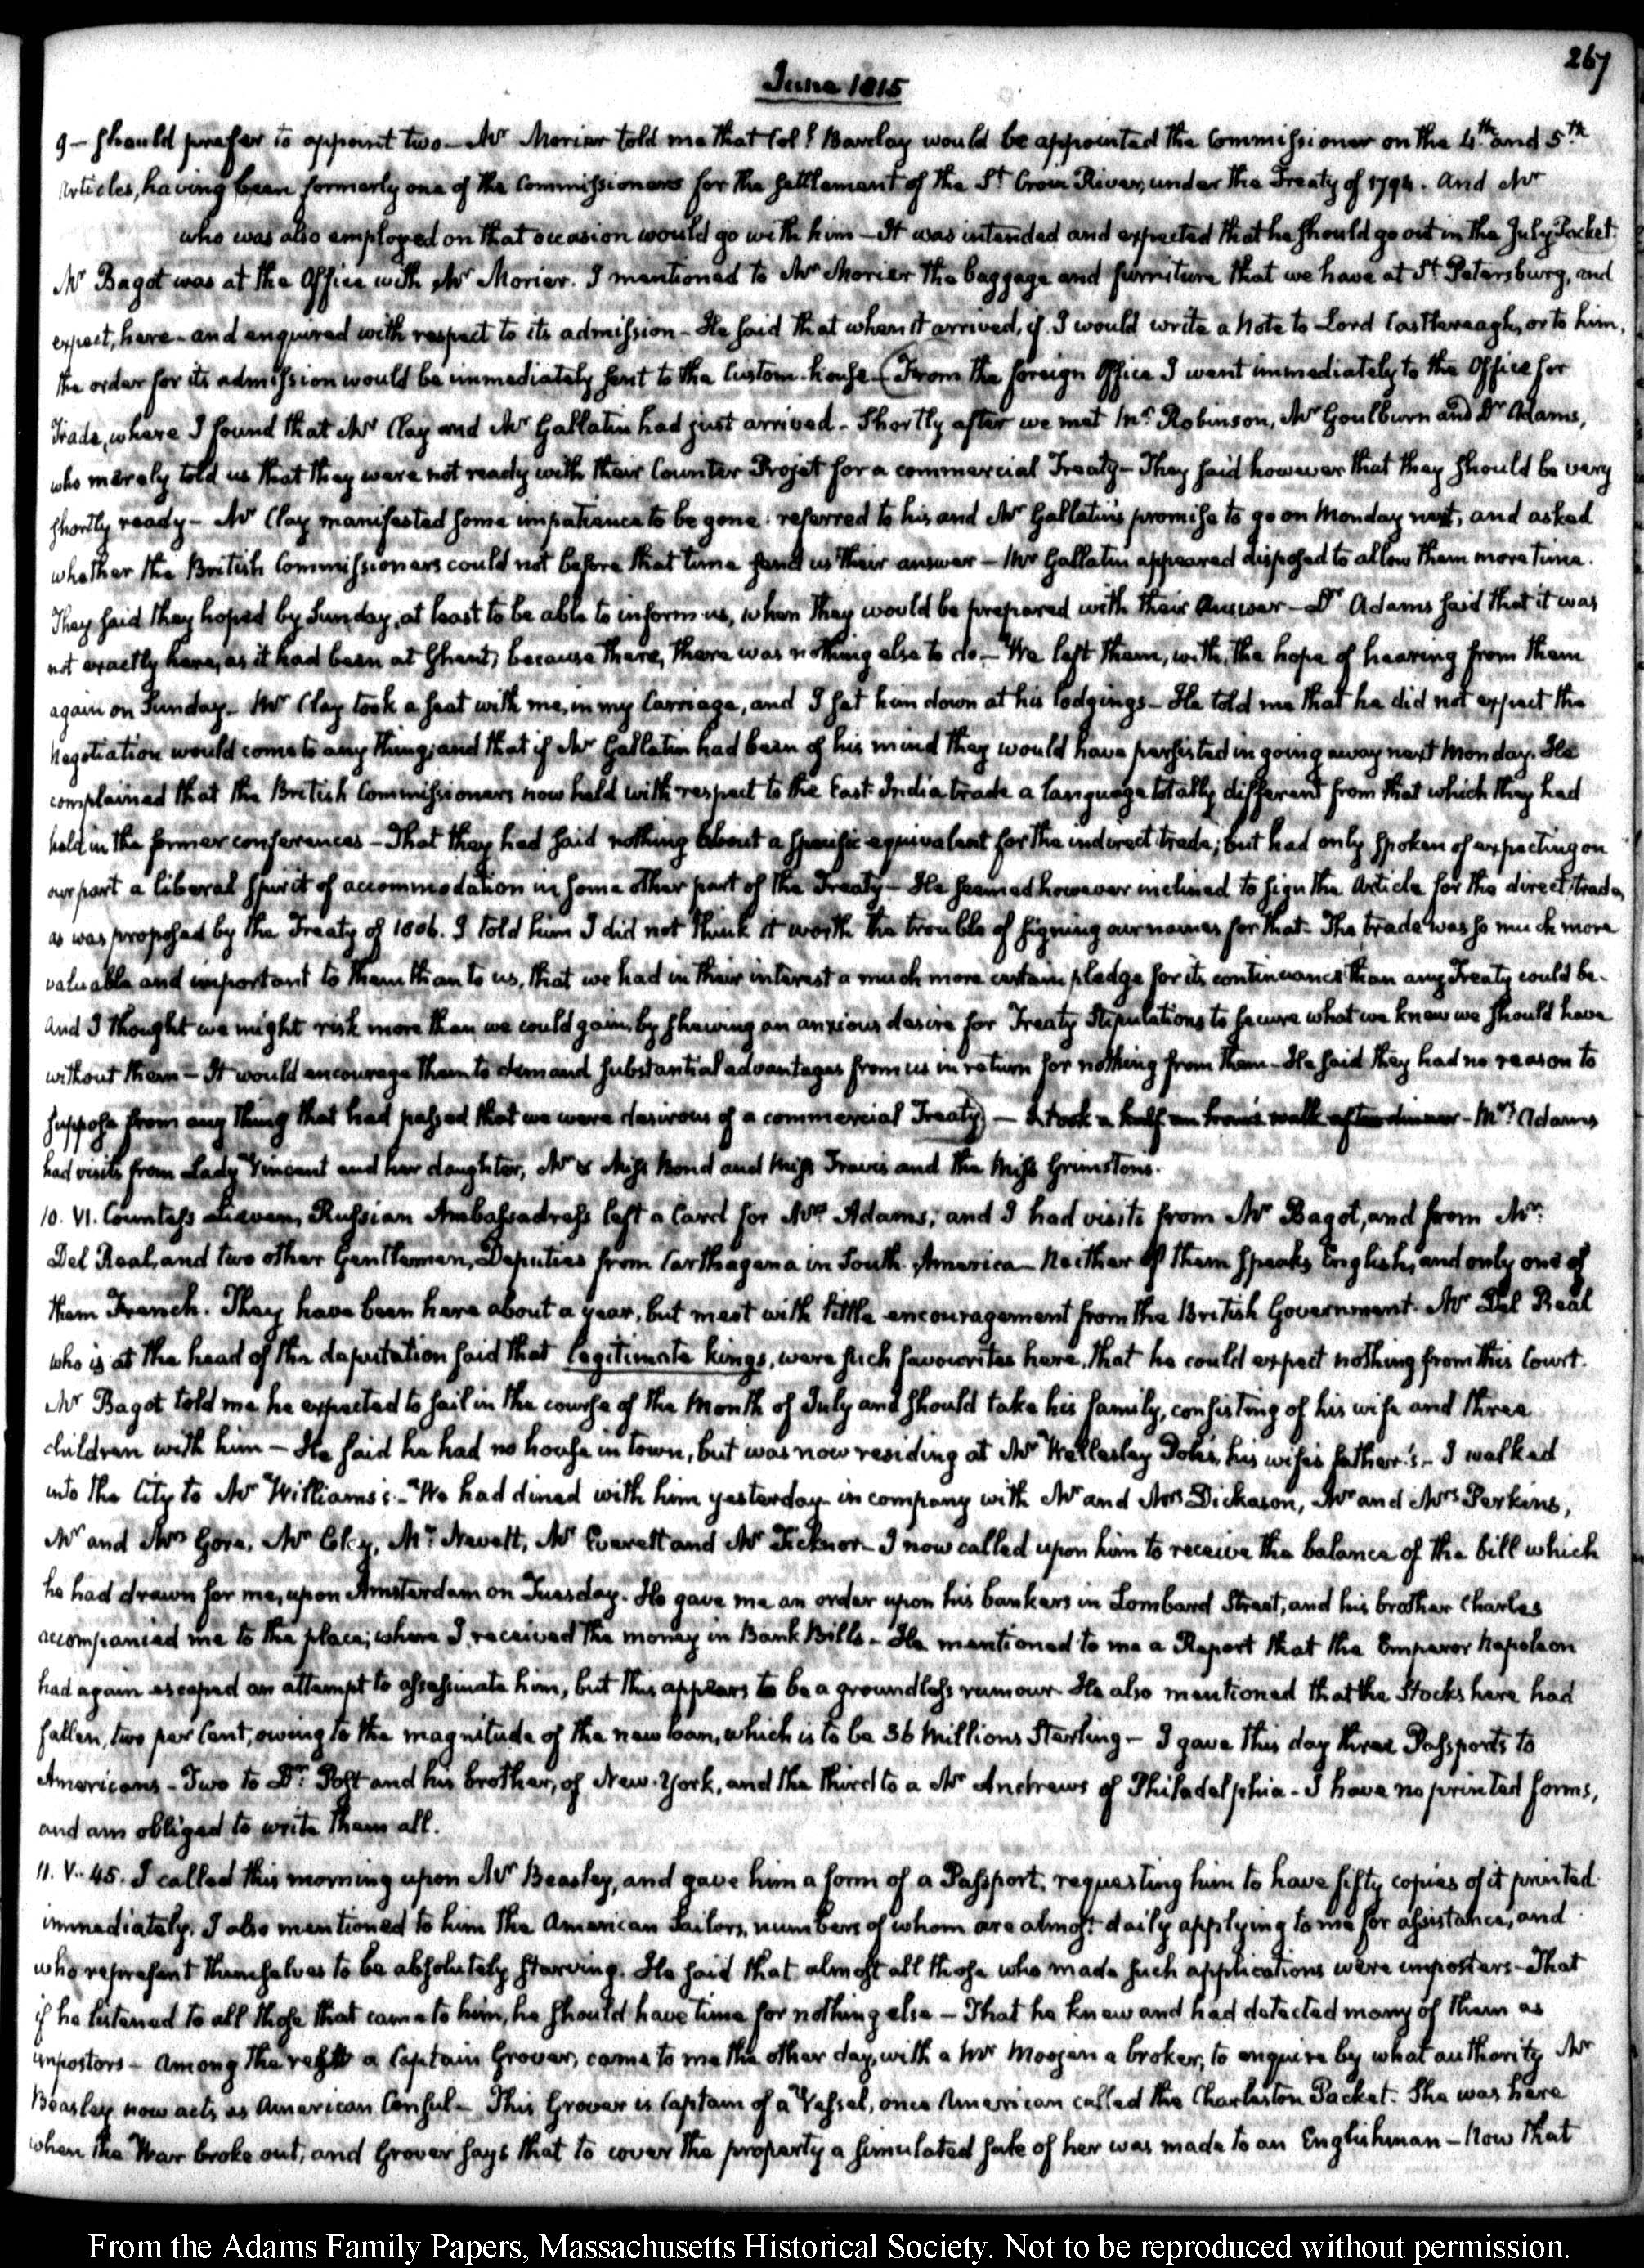 267
June 1815
9 — should prefer to appoint two — Mr Morier told me that Coll. Barclay would be appointed the Commissioner on the 4th and 5th
Articles, having been formerly one of the Commissioners for the settlement of the St Croix River, under the Treaty of 1794. And Mr
who was also employed on that occasion would go with him — It was intended and expected that he should go out in the July Packet.
Mr Bagot was at the Office with Mr Morier. I mentioned to Mr Morier the baggage and furniture that we have at St Petersburg, and
expect, here — and enquired with respect to its admission — He said that when it arrived, if I would write a Note to Lord Castlereagh, or to him,
the order for its admission would be immediately sent to the Custom-house — (From the foreign Office I went immediately to the Office for
Trade, where I found that Mr Clay and Mr Gallatin had just arrived — Shortly after we met Mr Robinson, Mr Goulburn and Dr Adams,
who merely told us that they were not ready with their Counter Projet for a commercial Treaty — They said however that they should be very
shortly ready — Mr Clay manifested some impatience to be gone: referred to his and Mr Gallatin's promise to go on Monday next, and asked
whether the British Commissioners could not before that time send us their answer — Mr Gallatin appeared disposed to allow them more time.
They said they hoped by Sunday, at least to be able to inform us, when they would be prepared with their Answer — Dr Adams said that it was
not exactly here, as it had been at Ghent; because there, there was nothing else to do — We left them, with, the hope of hearing from them
again on Sunday — Mr Clay took a seat with me, in my Carriage, and I set him down at his lodgings — He told me that he did not expect the
Negotiation would come to any thing; and that if Mr Gallatin had been of his mind they would have persisted in going away next Monday. He
complained that the British Commissioners now held with respect to the East-India trade a language totally different from that which they had
held in the former conferences — That they had said nothing about a specific equivalent for the indirect trade; but had only spoken of expecting on
our part a liberal spirit of accommodation in some other part of the Treaty — He seemed however inclined to sign the Article for the direct trade,
as was proposed by the Treaty of 1806. I told him I did not think it worth the trouble of signing our names for that — The trade was so much more
valuable and important to them than to us, that we had in their interest a much more certain pledge for its continuance than any Treaty could be.
And I thought we might risk more than we could gain, by shewing an anxious desire for Treaty Stipulations to secure what we knew we should have
without them — It would encourage them to demand substantial advantages from us in return for nothing from them — He said they had no reason to
suppose from any thing that had passed that we were desirous of a commercial Treaty) — I took a half an hour's walk after dinner — Mrs Adams
had visits from Lady Vincent and her daughter, Mr & Miss Bond and Miss Travis and the Miss Grimstons.
10. VI. Countess Lieven, Russian Ambassadress left a Card for Mrs Adams; and I had visits from Mr Bagot, and from Mr.
Del Real, and two other Gentlemen, Deputies from Carthagena in South-America — Neither of them speaks English, and only one of
them French. They have been here about a year, but meet with little encouragement from the British Government. Mr Del Real
who is at the head of the deputation said that legitimate kings, were such favourites here, that he could expect nothing from this Court.
Mr Bagot told me he expected to sail in the course of the Month of July and should take his family, consisting of his wife and three
children with him — He said he had no house in town, but was now residing at Mr Wellesley Pole's, his wife's father's — I walked
into the City to Mr Williams's — We had dined with him yesterday in company with Mr and Mrs Dickason, Mr and Mrs Perkins,
Mr and Mrs Gore, Mr Clay, Mr Nevett, Mr Everett and Mr Ticknor — I now called upon him to receive the balance of the bill which
he had drawn for me, upon Amsterdam on Tuesday. He gave me an order upon his bankers in Lombard Street, and his brother Charles
accompanied me to the place; where I received the money in Bank Bills — He mentioned to me a Report that the Emperor Napoleon
had again escaped an attempt to assassinate him, but this appears to be a groundless rumour — He also mentioned that the Stocks here had
fallen, two per Cent, owing to the magnitude of the new loan, which is to be 36 Millions Sterling — I gave this day three Passports to
Americans — Two to Dr. Post and his brother, of New-York, and the third to a Mr Andrews of Philadelphia — I have no printed forms,
and am obliged to write them all.
11. V. 45. I called this morning upon Mr Beasley, and gave him a form of a Passport, requesting him to have fifty copies of it printed
immediately. I also mentioned to him the American Sailors, numbers of whom are almost daily applying to me for assistance, and
who represent themselves to be absolutely starving. He said that almost all those who made such applications were impostors — That
if he listened to all those that came to him, he should have time for nothing else — That he knew and had detected many of them as
impostors — Among the rest a Captain Grover, came to me the other day, with a Mr Moojen a broker, to enquire by what authority Mr
Beasley now acts as American Consul — This Grover is Captain of a Vessel, once American called the Charleston Packet. She was here
when the War broke out, and Grover says that to cover the property a simulated sale of her was made to an Englishman — Now that
From the Adams Family Papers, Massachusetts Historical Society. Not to be reproduced without permission.